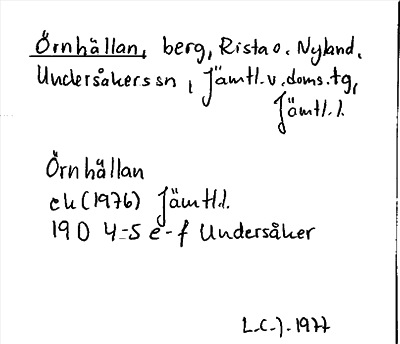 Örnhällan, berg, Rista o. Nyland,
Undersåkers sn, Jämtl. v. doms. tg,
Jämtl. l.
Örnhällan
ek (1976) Jämtl.l.
19D 4-5 e-f Undersåker
L-C-J-1977